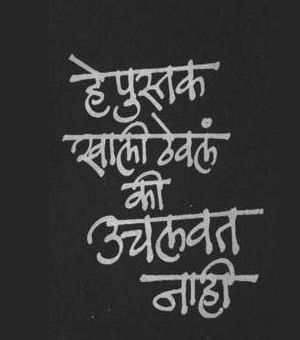 हे पुस्तक
खाली ठेवलं
की
उचलवत
नाही